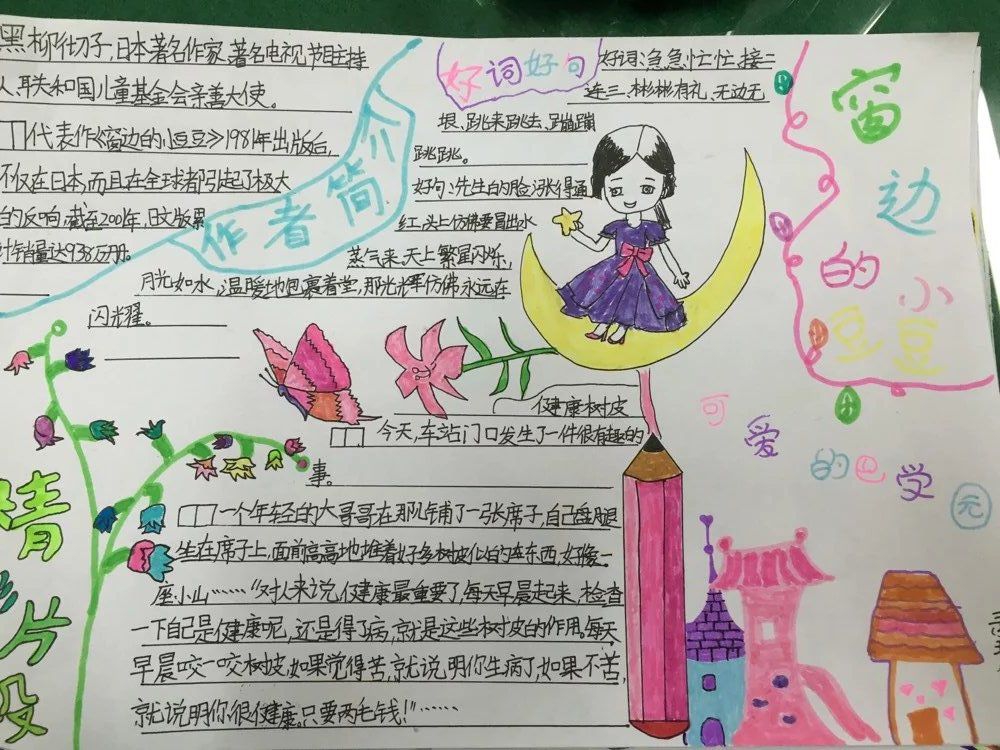 黑柳彻子,日本著名作家,著名电视节目主持
人、联和国儿童基金会亲善大使。
代表作《窗边的小豆豆》1981年出版后,
不仅在日本,而且在全球都引起了极大
的反响,截至2001年,日文版累
计销量达938万册。
作者简介
好词好句
好词:急急忙忙、接二
连三、彬彬有礼、无边无
垠、跳来跳去、蹦蹦
跳跳。
好句:先生的脸涨得通
红,头上仿佛要冒出水
蒸气来,天上繁星闪烁,
月光如水,温暖地包裹着堂,那光辉仿佛永远在
闪光耀。
窗边的小豆豆
可爱的巴学园
精彩片段
健康树皮
今天,车站门口发生了一件很有趣的
事。
一个年轻的大哥哥在那儿铺了一张席子,自己盘腿
坐在席子上,面前高高地堆着好多树皮似的东西,好像一
座小山……“对人来说,健康最重要了,每天早晨起来,检查
一下自己是健康呢,还是得了病,就是这些树皮的作用。每天
早晨咬一咬树皮,如果觉得苦,就说明你生病了,如果不苦,
就说明你很健康。只要两毛钱!”……